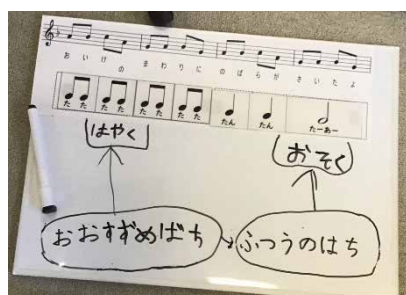 おいけの まわりに のばらが さいたよ
たた たた たた たた たん たん たーあー
はやく おそく
おおすずめばち ふつうのはち